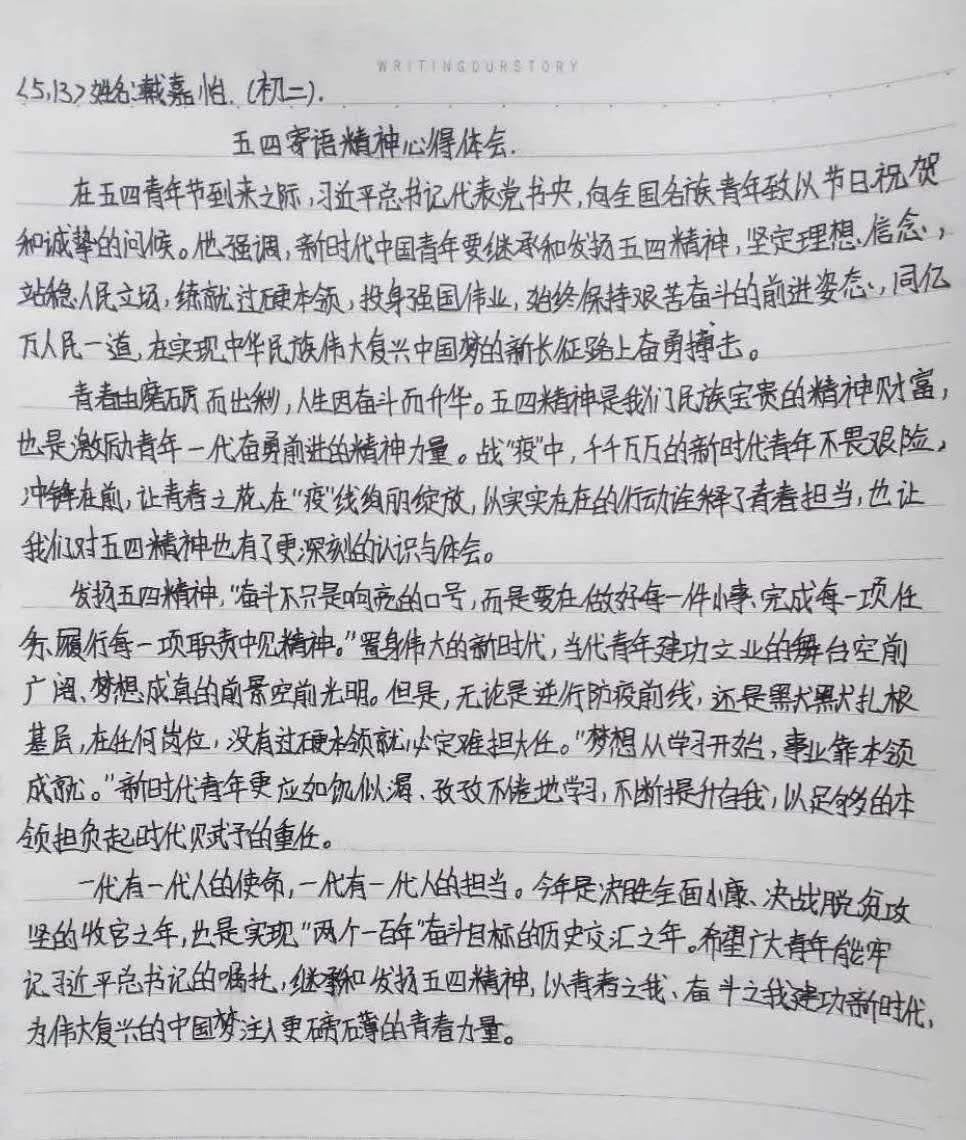 WRITINGOURSTORY
<5,13>姓名:戴嘉怡.(初二).
五四寄语精神心得体会.
在五四青年节到来之际,习近平总书记代表党书央,向全国名族青年致以节日祝贺
和诚挚的问候。他强调,新时代中国青年要继承和发扬五四精神,坚定理想、信念,
站稳人民立场,练就过硬本领,投身强国伟业,始终保持艰苦奋斗的前进姿态,同亿
万人民一道,在实现中华民族伟大复兴中国梦的新长征路上奋勇搏击。
青春由磨砺而出彩,人生因奋斗而升华。五四精神是我们民族宝贵的精神财富,
也是激励青年一代奋勇前进的精神力量。战"疫"中,千千万万的新时代青年不畏艰险,
冲锋在前,让青春之花在"疫"线绚丽绽放,以实实在在的行动诠释了青春担当,也让
我们对五四精神也有了更深刻的认识与体会。
发扬五四精神,"奋斗不只是响亮的口号,而是要在做好每一件小事、完成每一项任
务、履行每一项职责中见精神。"置身伟大的新时代,当代青年建功立业的舞台空前
广阔、梦想成真的前景空前光明。但是,无论是逆行防疫前线,还是默默扎根
基层,在任何岗位,没有过硬本领就必定难担大任。"梦想从学习开始,事业靠本领
成就。"新时代青年更应如饥似渴、孜孜不倦地学习,不断提升自我,以足够多的本
领担负起时代赋予的重任。
一代有一代人的使命,一代有一代人的担当。今年是决胜全面小康、决战脱贫攻
坚的收官之年,也是实现"两个一百年"奋斗目标的历史交汇之年。希望广大青年能牢
记习近平总书记的嘱托,继承和发扬五四精神,以青春之我、奋斗之我建功新时代,
为伟大复兴的中国梦注入更磅礴的青春力量。